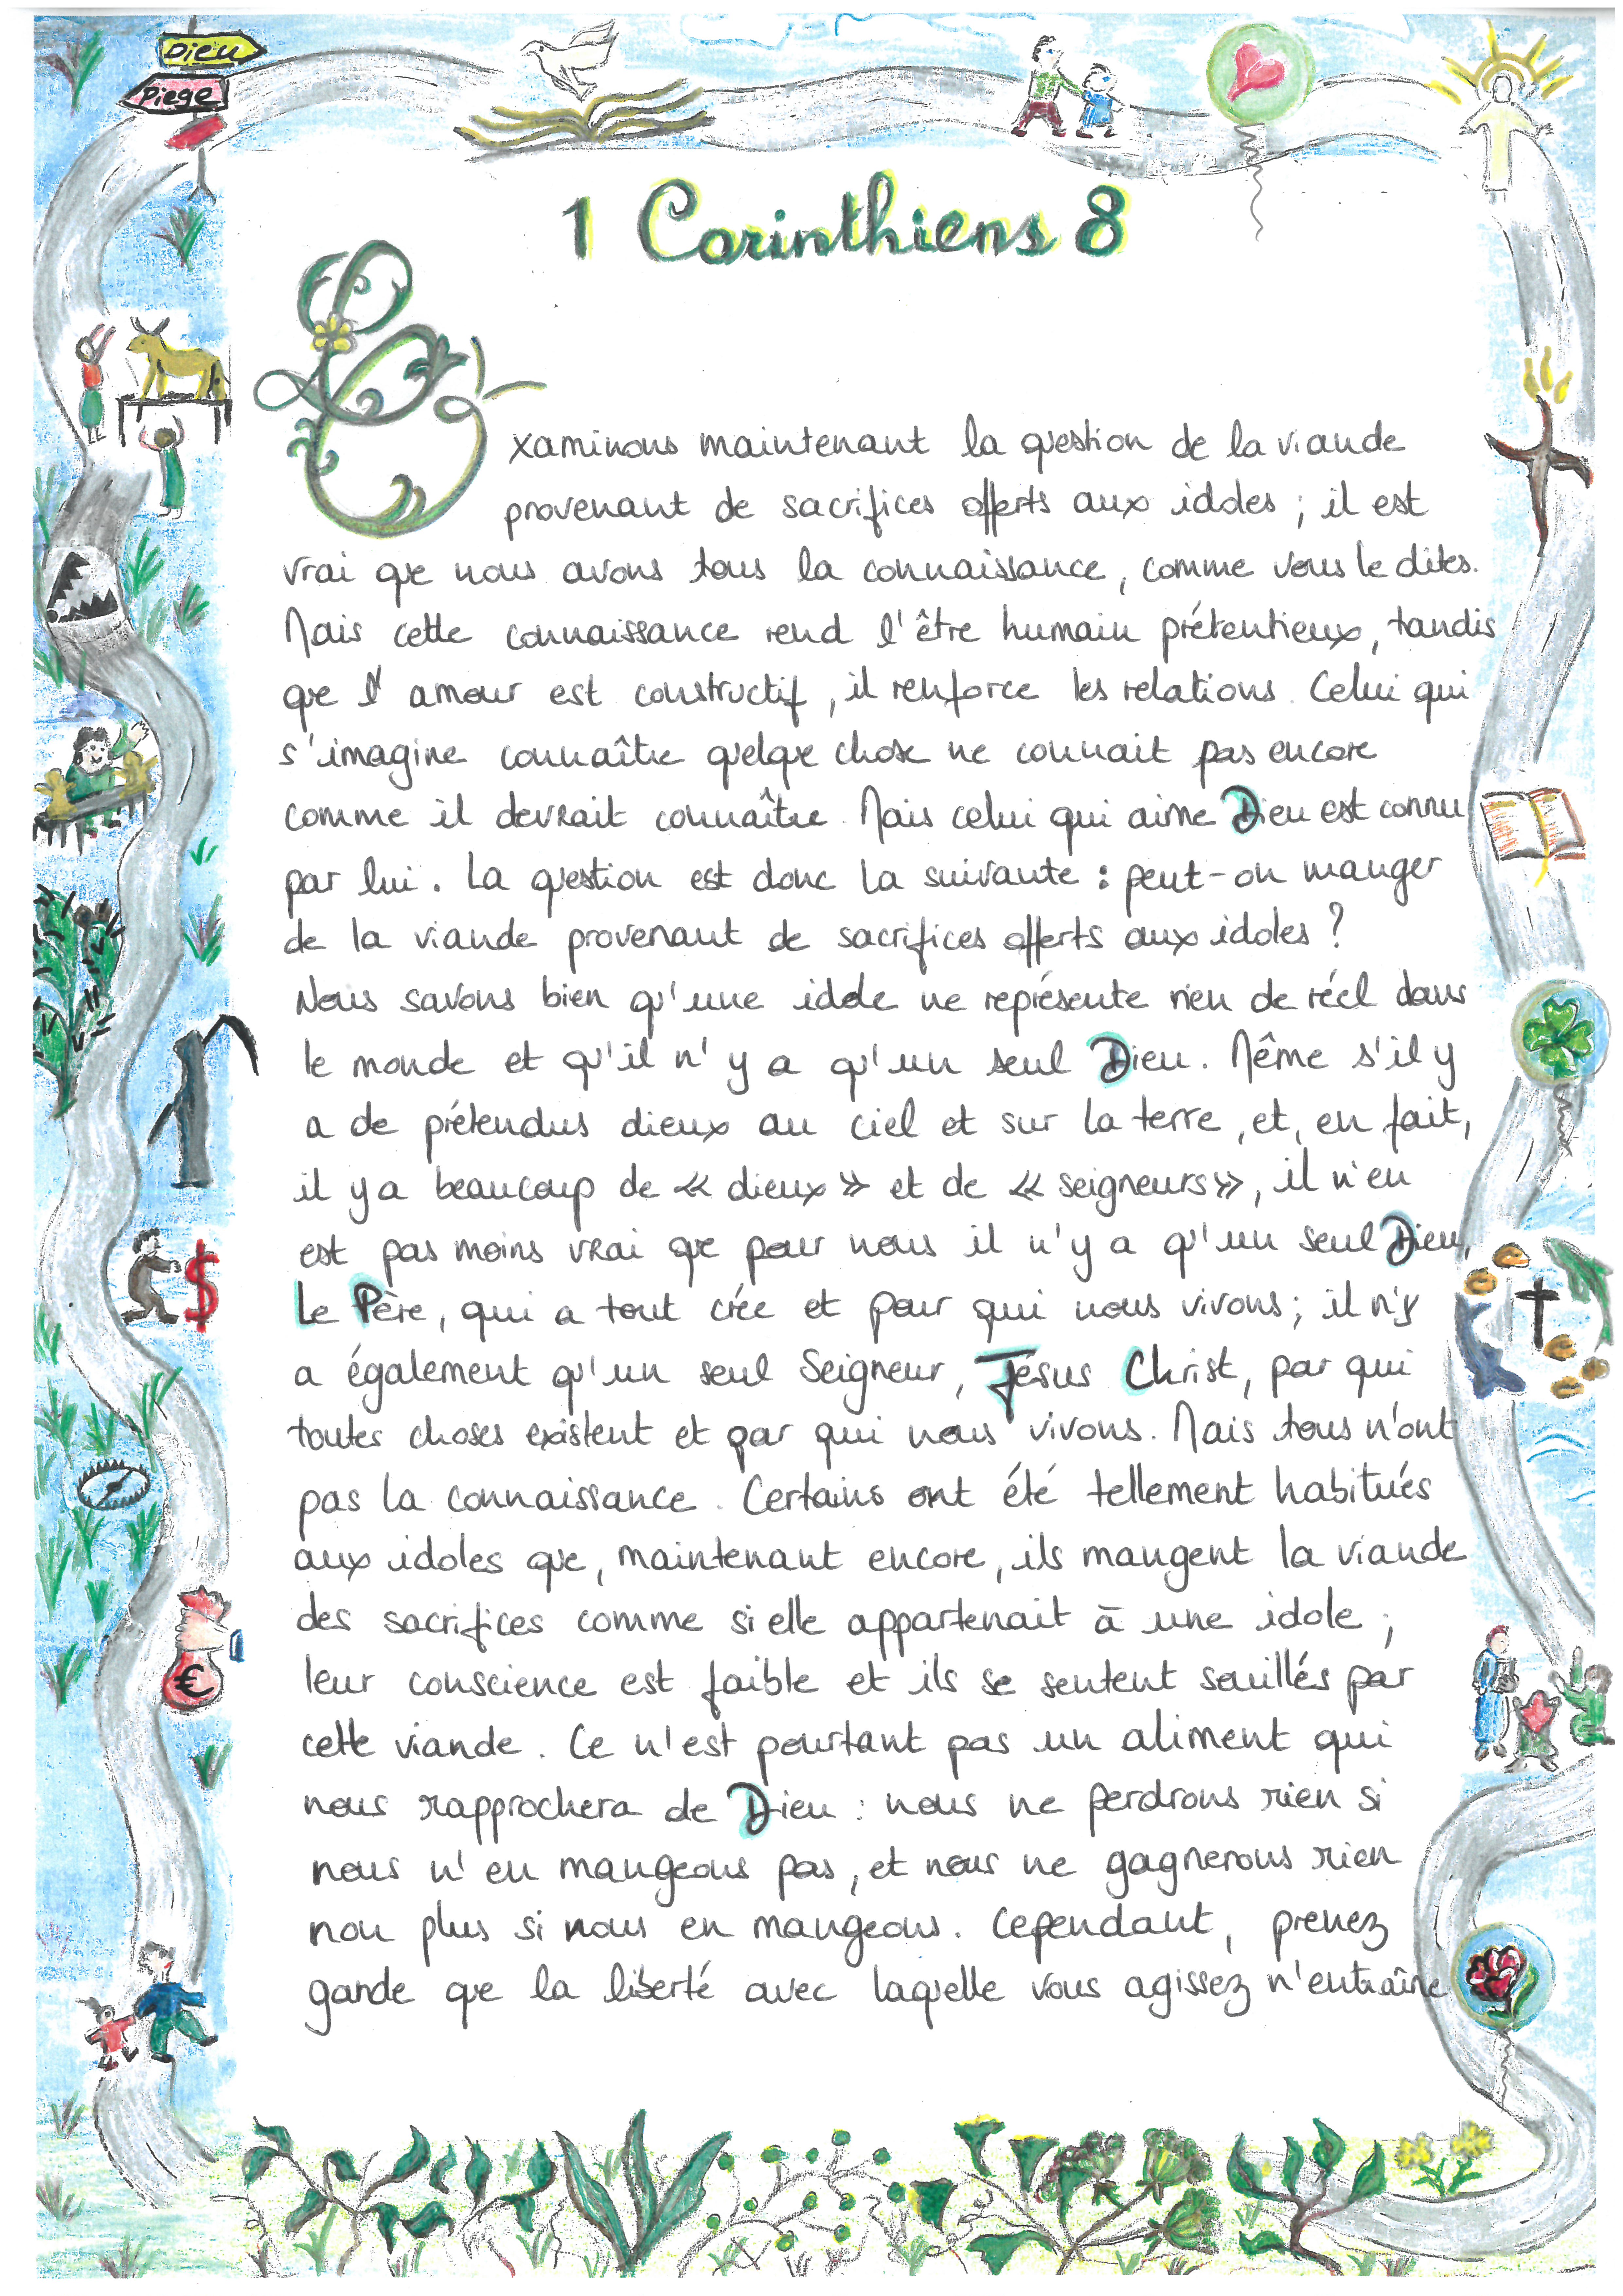 Dieu
Piege
1 Corinthiens 8
Examinons maintenant la question de la viande
provenant de sacrifices offerts aux idoles ; il est
vrai que nous avons tous la connaissance, comme vous le dites.
Mais cette connaissance rend l'être humain prétentieux, tandis
que l'amour est constructif, il renforce les relations. Celui qui
s'imagine connaître quelque chose ne connait pas encore
comme il devrait connaître. Mais celui qui aime Dieu est connu
par lui. La question est donc la suivante : peut-on manger
de la viande provenant de sacrifices offerts aux idoles ?
Nous savons bien qu'une idole ne représente rien de réel dans
le monde et qu'il n'y a qu'un seul Dieu. Même s'il y
a de prétendus dieux au ciel et sur la terre, et, en fait,
il y a beaucoup de « dieux » et de « seigneurs », il n'en
est pas moins vrai que pour nous il n'y a qu'un seul Dieu,
Le Père, qui a tout crée et pour qui nous vivons ; il n'y
a également qu'un seul Seigneur, Jésus Christ, par qui
toutes choses existent et par qui nous vivons. Mais tous n'ont
pas la connaissance. Certains ont été tellement habitués
aux idoles que, maintenant encore, ils mangent la viande
des sacrifices comme si elle appartenait à une idole ;
leur conscience est faible et ils se sentent souillés par
cette viande. Ce n'est pourtant pas un aliment qui
nous rapprochera de Dieu : nous ne perdrons rien si
nous n'en mangeons pas, et nous ne gagnerons rien
non plus si nous en mangeons. Cependant, prenez
garde que la liberté avec laquelle vous agissez n'entraîne
$
€